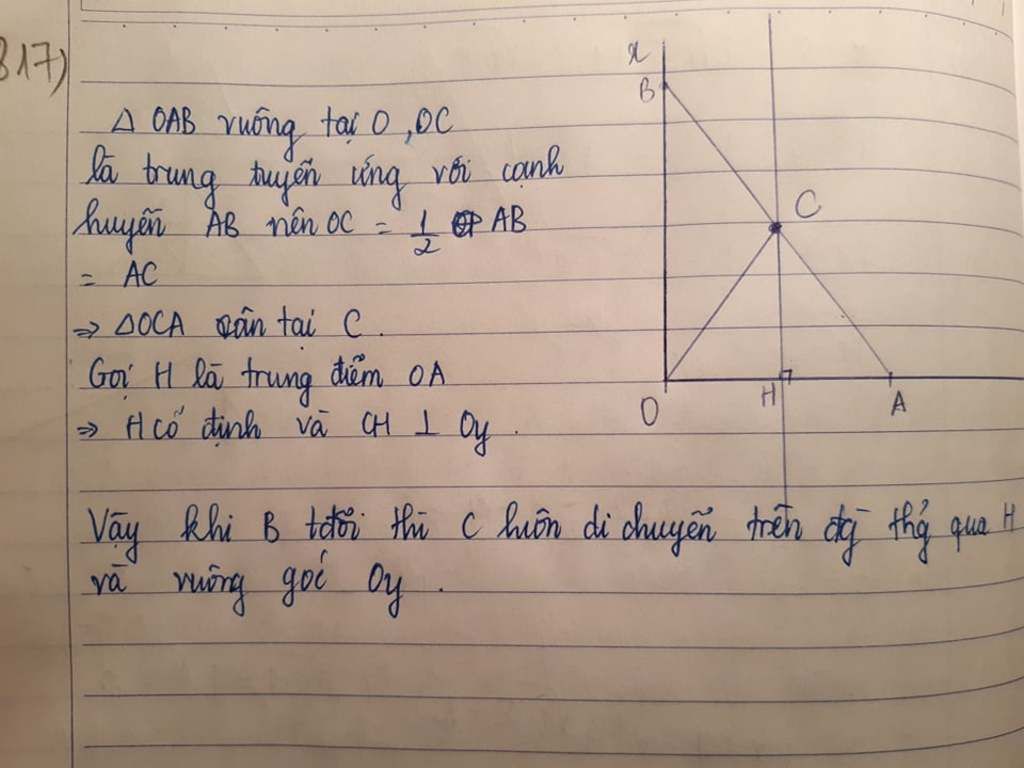 817)
Δ OAB vuông tại O, OC
là trung tuyến ứng với cạnh
huyền AB nên OC = 1/2 AB
= AC
⇒ ΔOCA cân tại C.
Gọi H là trung điểm OA
⇒ H cố định và CH ⊥ Oy.
Vậy khi B tđổi thì C luôn di chuyển trên đg thg qua H
và vuông góc Oy.
x
B
C
O
H
A